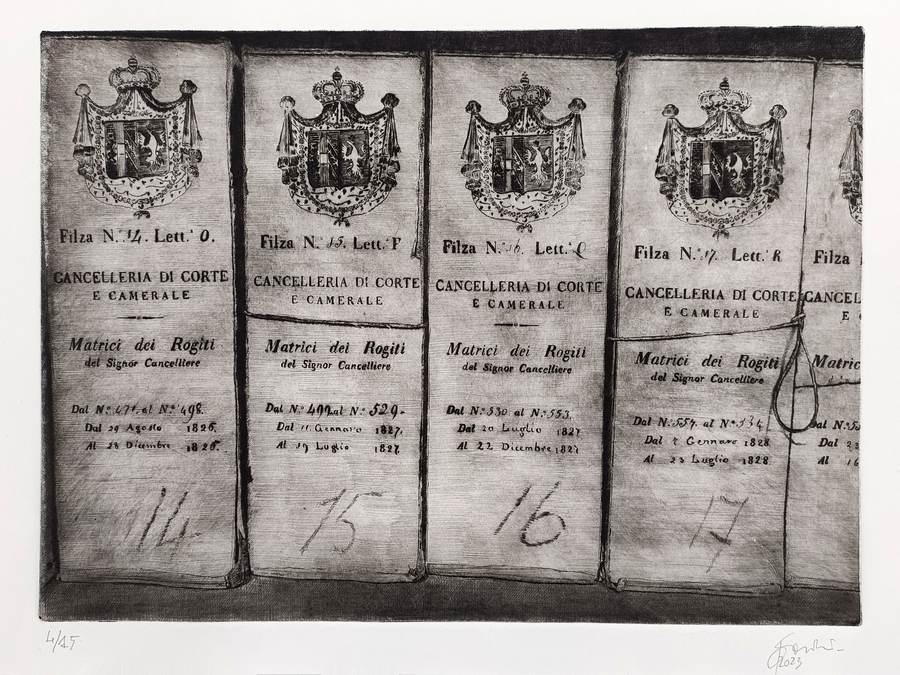 Filza N.° 14. Lett.ª O.
CANCELLERIA DI CORTE
E CAMERALE
Matrici dei Rogiti
del Signor Cancelliere
Dal N.° 471. al N.° 498.
Dal 29 Agosto 1826.
Al 28 Dicembre 1826.
14.
Filza N.° 15. Lett.ª P
CANCELLERIA DI CORTE
E CAMERALE
Matrici dei Rogiti
del Signor Cancelliere
Dal N.° 499. al N.° 529.
Dal 11 Gennaro 1827.
Al 19 Luglio 1827.
15
Filza N.° 16. Lett.ª Q
CANCELLERIA DI CORTE
E CAMERALE
Matrici dei Rogiti
del Signor Cancelliere
Dal N.° 530 al N.° 553.
Dal 20 Luglio 1827
Al 22 Dicembre 1827
16
Filza N.° 17. Lett.ª R
CANCELLERIA DI CORTE
E CAMERALE
Matrici dei Rogiti
del Signor Cancelliere
Dal N.° 554. al N.°
Dal 7 Gennaro 1828
Al 23 Luglio 1828
17
Filza
CANCELL
E
Matric
Dal N.°
Dal
Al 16
4/45
2023